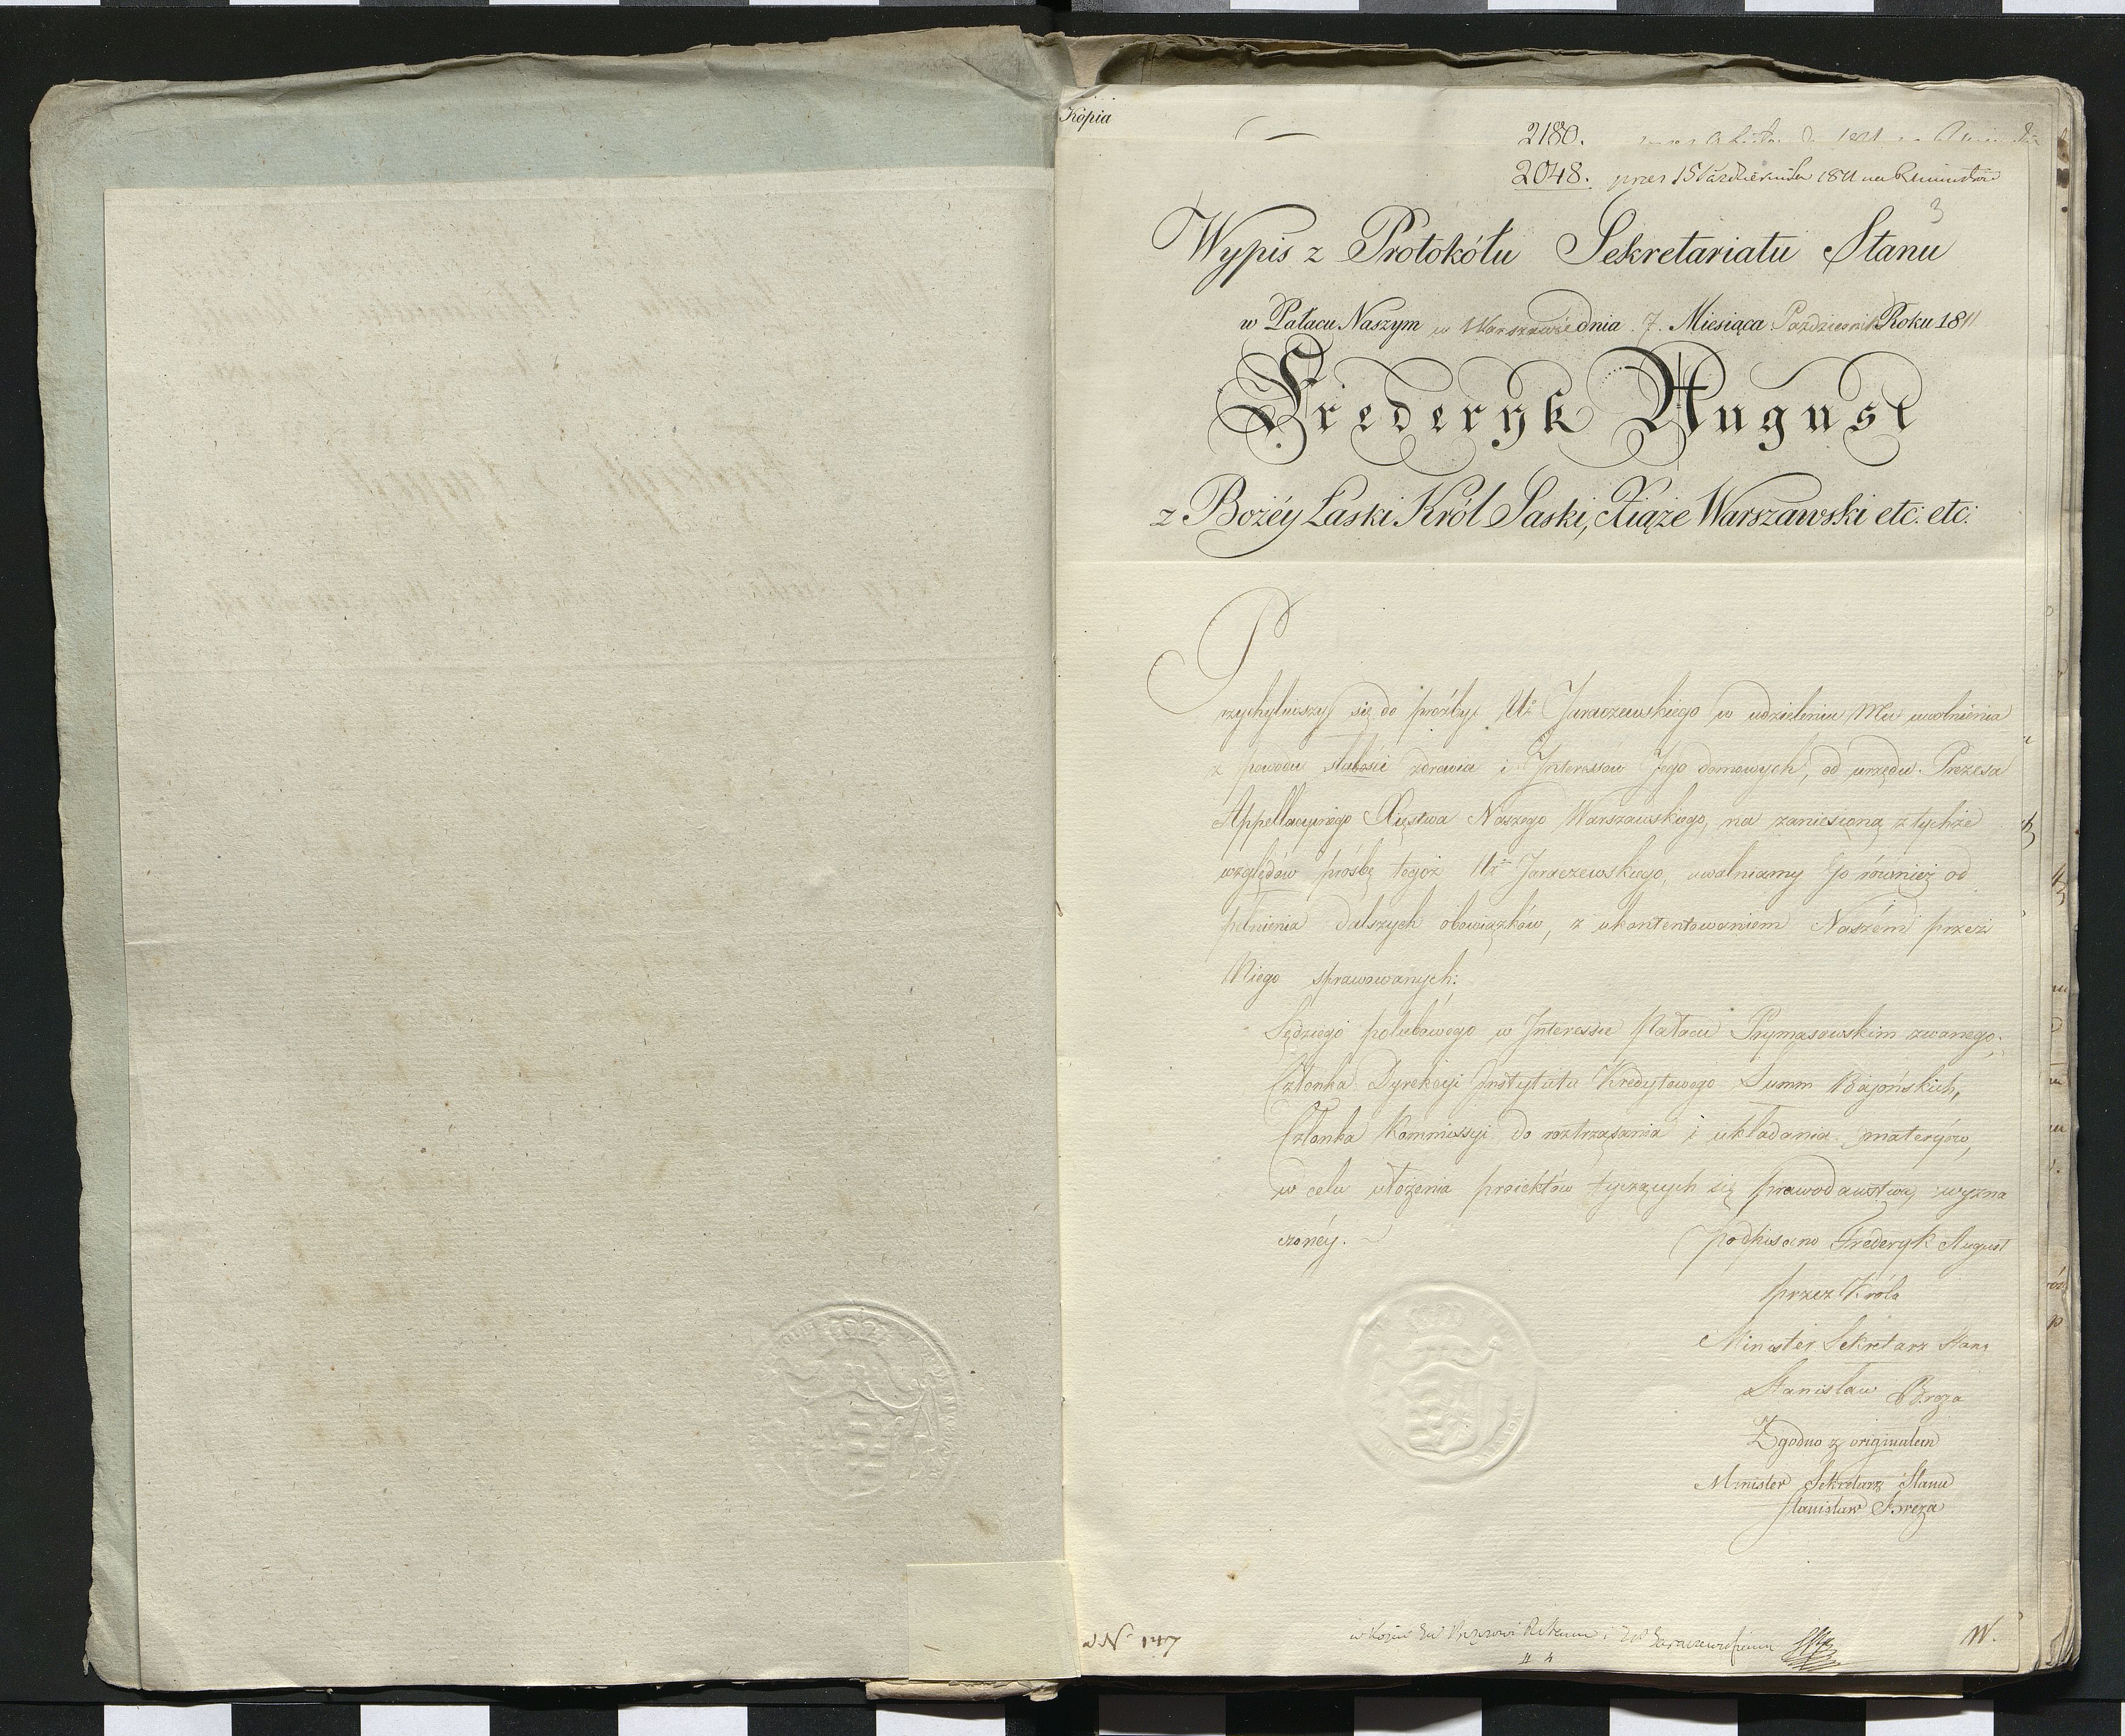 Kopia
2180.
2048. prez 15 Października 1811 na
3
Wypis z Protokółu Sekretariatu Stanu
w Pałacu Naszym w Warszawie dnia 7. Miesiąca Październik Roku 1811
Fréderyk August
z Bożéy Łaski Król Saski, Xiąże Warszawski etc: etc:
Przychyliwszy się do proźby Ur. Jaraczewskiego w udzieleniu Mu uwolnienia
z powodu słabości zdrowia i Interessów Jego domowych, od urzędu Prezesa
Appellacyinego Xięstwa Naszego Warszawskiego, na zaniesioną z tychże
względów prośbę tegoż Ur. Jaraczewskiego, uwalniamy Go również od
pełnienia dalszych obowiązków, z ukontentowaniem Naszém przez
Niego sprawowanych:
Sędziego polubowego w Interessie Pałacu Prymasowskim zwanego;
Członka Dyrekcyi Instytutu Kredytowego Summ Bajońskich,
Członka Kommissyi do roztrząsania i układania materyów,
w celu ułożenia proiektów tyczących się prawodawstwa, wyzna
czonéy.
podpisano Frederyk August
przez Króla
Minister Sekretarz Stanu
Stanisław Breza
Zgodno z originałem
Minister Sekretarz Stanu
Stanisław Breza
ad N. 147
i Jaraczewskiemu